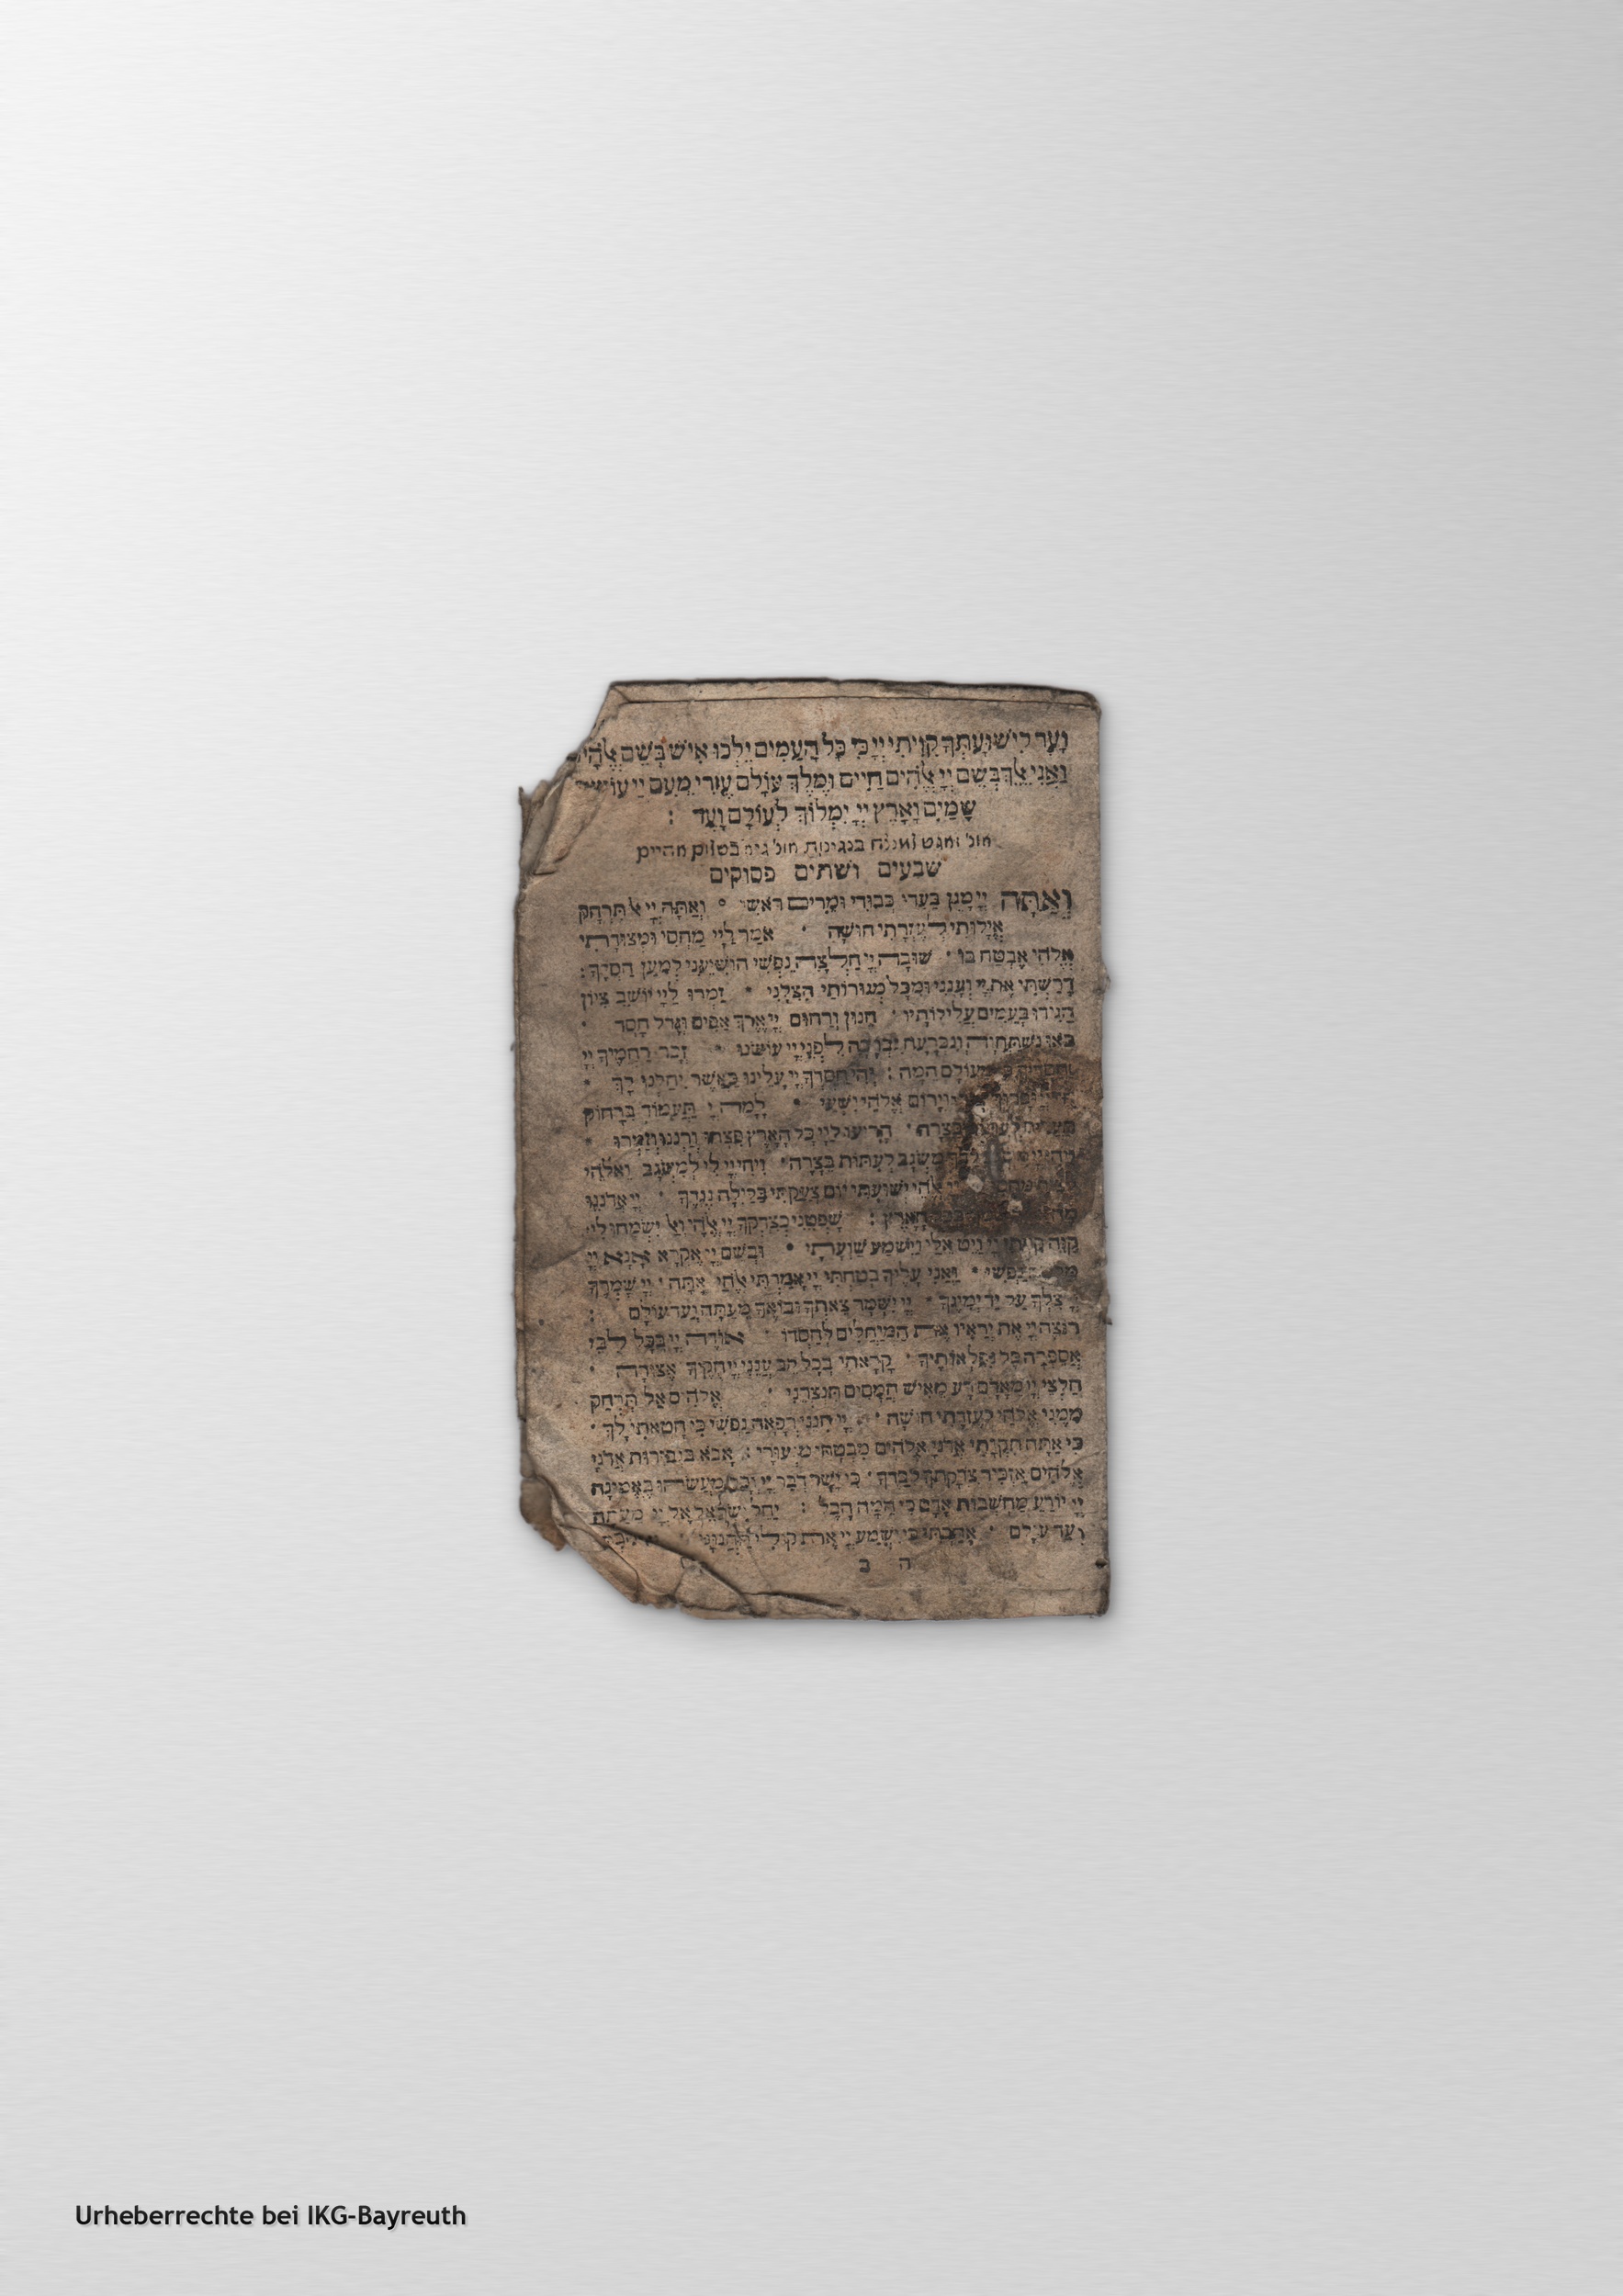 וָעֶד לִישׁוּעָתְךָ קִוִּיתִי יְיָ כִּי כָּל הָעַמִּים יֵלְכוּ אִישׁ בְּשֵׁם אֱלֹהָיו
וַאֲנִי אֵלֵךְ בְּשֵׁם יְיָ אֱלֹהִים חַיִּים וּמֶלֶךְ עוֹלָם עֶזְרִי מֵעִם יְיָ עוֹשֵׂה
שָׁמַיִם וָאָרֶץ יְיָ יִמְלוֹךְ לְעוֹלָם וָעֶד :
שבעים ושתים פסוקים
וְאַתָּה יְיָ מָגֵן בַּעֲדִי כְּבוֹדִי וּמֵרִים רֹאשִׁי • וְאַתָּה יְיָ אַל תִּרְחָק
אֱיָלוּתִי לְעֶזְרָתִי חוּשָׁה • אֹמַר לַיְיָ מַחְסִי וּמְצוּדָתִי
אֱלֹהַי אֶבְטַח בּוֹ • שׁוּבָה יְיָ חַלְּצָה נַפְשִׁי הוֹשִׁיעֵנִי לְמַעַן חַסְדֶּךָ :
דָּרַשְׁתִּי אֶת יְיָ וְעָנָנִי וּמִכָּל מְגוּרוֹתַי הִצִּלָנִי • זַמְּרוּ לַיְיָ יוֹשֵׁב צִיּוֹן
הַגִּידוּ בָעַמִּים עֲלִילוֹתָיו • חַנּוּן וְרַחוּם יְיָ אֶרֶךְ אַפַּיִם וּגְדָל חָסֶד •
בֹּאוּ נִשְׁתַּחֲוֶה וְנִכְרָעָה נִבְרְכָה לִפְנֵי יְיָ עוֹשֵׂנוּ • זְכֹר רַחֲמֶיךָ יְיָ
מֵעוֹלָם הֵמָּה : יְהִי חַסְדְּךָ יְיָ עָלֵינוּ כַּאֲשֶׁר יִחַלְנוּ לָךְ •
וְיָרוּם אֱלֹהֵי יִשְׁעִי • לָמָה יְיָ תַּעֲמוֹד בְּרָחוֹק
בַּצָּרָה • הָרִיעוּ לַיְיָ כָּל הָאָרֶץ פִּצְחוּ וְרַנְּנוּ וְזַמֵּרוּ •
מִשְׂגָּב לְעִתּוֹת בַּצָּרָה • וַיְהִי יְיָ לִי לְמִשְׂגָּב וֵאלֹהַי
אֱלֹהֵי יְשׁוּעָתִי יוֹם צָעַקְתִּי בַּלַּיְלָה נֶגְדֶּךָ • יְיָ אֲדֹנֵנוּ
הָאָרֶץ : שָׁפְטֵנִי כְצִדְקְךָ יְיָ אֱלֹהַי וְאַל יִשְׂמְחוּ לִי
קַוֹּה קִוִּיתִי יְיָ וַיֵּט אֵלַי וַיִּשְׁמַע שַׁוְעָתִי • וּבְשֵׁם יְיָ אֶקְרָא אָנָּא יְיָ
נַפְשִׁי • וַאֲנִי עָלֶיךָ בָטַחְתִּי יְיָ אָמַרְתִּי אֱלֹהַי אָתָּה • יְיָ שֹׁמְרֶךָ
יְיָ צִלְּךָ עַל יַד יְמִינֶךָ • יְיָ יִשְׁמָר צֵאתְךָ וּבוֹאֶךָ מֵעַתָּה וְעַד עוֹלָם :
רוֹצֶה יְיָ אֶת יְרֵאָיו אֶת הַמְיַחֲלִים לְחַסְדּוֹ • אוֹדֶה יְיָ בְּכָל לִבִּי
אֲסַפְּרָה כָּל נִפְלְאוֹתֶיךָ • קָרָאתִי בְכָל לֵב עֲנֵנִי יְיָ חֻקֶּיךָ אֶצּוֹרָה •
חַלְּצֵנִי יְיָ מֵאָדָם רָע מֵאִישׁ חֲמָסִים תִּנְצְרֵנִי : אֱלֹהִים אַל תִּרְחַק
מִמֶּנִּי אֱלֹהַי לְעֶזְרָתִי חוּשָׁה • יְיָ חָנֵּנִי רְפָאָה נַפְשִׁי כִּי חָטָאתִי לָךְ •
כִּי אַתָּה תִקְוָתִי אֲדֹנָי אֱלֹהִים מִבְטַחִי מִנְּעוּרָי : אָבֹא בִּגְבוּרוֹת אֲדֹנָי
אֱלֹהִים אַזְכִּיר צִדְקָתְךָ לְבַדֶּךָ • כִּי יָשָׁר דְּבַר יְיָ וְכָל מַעֲשֵׂהוּ בֶּאֱמוּנָה
יְיָ יוֹדֵעַ מַחְשְׁבוֹת אָדָם כִּי הֵמָּה הָבֶל : יַחֵל יִשְׂרָאֵל אֶל יְיָ מֵעַתָּה
וְעַד עוֹלָם • אָהַבְתִּי כִּי יִשְׁמַע יְיָ אֶת קוֹלִי תַּחֲנוּנָי
ה ב
Urheberrechte bei IKG-Bayreuth